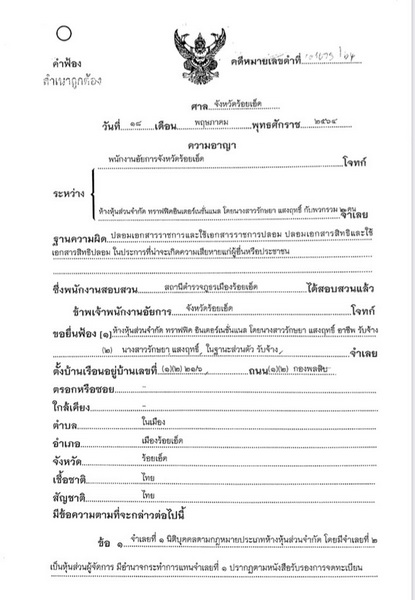 คำฟ้อง
คดีหมายเลขดำที่
สำเนาถูกต้อง
ศาล จังหวัดร้อยเอ็ด
วันที่ ๑๘ เดือน พฤษภาคม พุทธศักราช ๒๕๖๔
ความอาญา
พนักงานอัยการจังหวัดร้อยเอ็ด โจทก์
ระหว่าง
ห้างหุ้นส่วนจำกัด ทราฟฟิคอินเตอร์เนชั่นแนล โดยนางสาวรักษยา แสงฤทธิ์ กับพวกรวม ๒ คน จำเลย
ฐานความผิด ปลอมเอกสารราชการและใช้เอกสารราชการปลอม ปลอมเอกสารสิทธิและใช้
เอกสารสิทธิปลอม ในประการที่น่าจะเกิดความเสียหายแก่ผู้อื่นหรือประชาชน
ซึ่งพนักงานสอบสวน สถานีตำรวจภูธรเมืองร้อยเอ็ด ได้สอบสวนแล้ว
ข้าพเจ้าพนักงานอัยการ จังหวัดร้อยเอ็ด โจทก์
ขอยื่นฟ้อง [๑] ห้างหุ้นส่วนจำกัด ทราฟฟิค อินเตอร์เนชั่นแนล โดยนางสาวรักษยา แสงฤทธิ์ อาชีพ รับจ้าง
(๒) นางสาวรักษยา แสงฤทธิ์ ในฐานะส่วนตัว รับจ้าง จำเลย
ตั้งบ้านเรือนอยู่บ้านเลขที่ (๑)(๒) ๒๑/๖ ถนน (๑)(๒) กองพลสิบ
ตรอกหรือซอย -
ใกล้เคียง -
ตำบล ในเมือง
อำเภอ เมืองร้อยเอ็ด
จังหวัด ร้อยเอ็ด
เชื้อชาติ ไทย
สัญชาติ ไทย
มีข้อความตามที่จะกล่าวต่อไปนี้
ข้อ ๑ จำเลยที่ ๑ นิติบุคคลตามกฎหมายประเภทห้างหุ้นส่วนจำกัด โดยมีจำเลยที่ ๒
เป็นหุ้นส่วนผู้จัดการ มีอำนาจกระทำการแทนจำเลยที่ ๑ ปรากฏตามหนังสือรับรองการจดทะเบียน